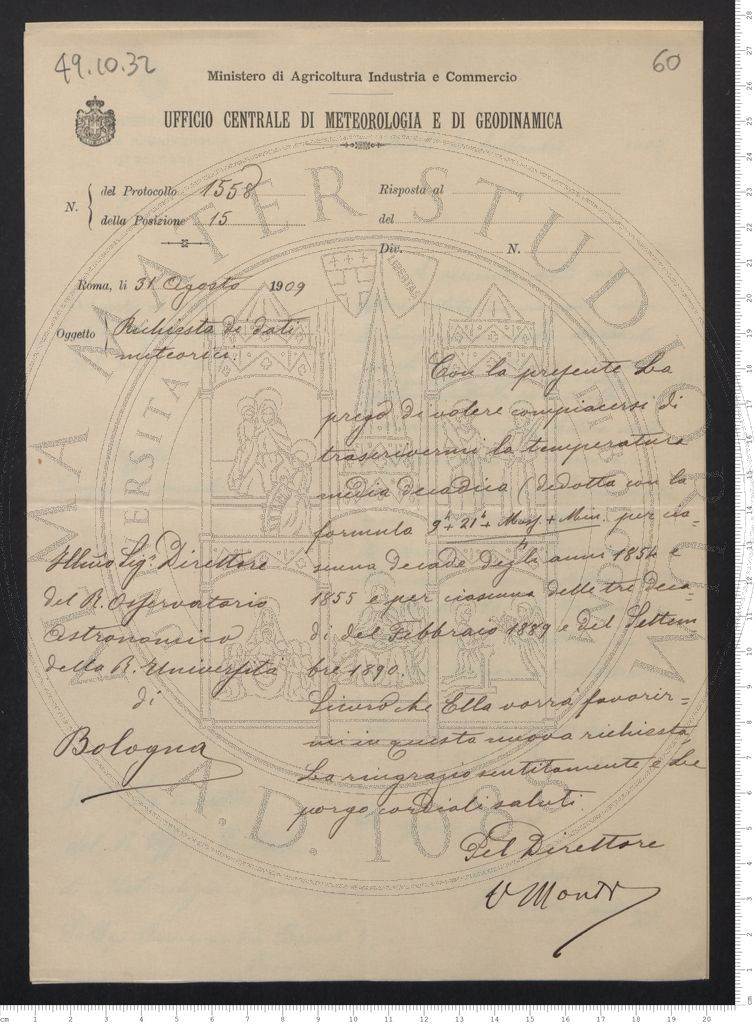 49.10.32
60
Ministero di Agricoltura Industria e Commercio
UFFICIO CENTRALE DI METEOROLOGIA E DI GEODINAMICA
N.
del Protocollo 1558
della Posizione 15
Risposta al
del
Div. N.
Roma, li 31 Agosto 1909
Oggetto Richiesta di dati
meteorici.
Con la presente La
prego di volere compiacersi di
trascrivermi la temperatura
media decadica (dedotta con la
formula 9h + 21h + Mass. + Min. per cia=
scuna decade degli anni 1854 e
1855 e per ciascuna delle tre deca=
di del Febbraio 1889 e del Settem=
bre 1890.
Sicuro che Ella vorrà favorir=
mi in questa nuova richiesta,
La ringrazio sentitamente e Le
porgo cordiali saluti.
Pel Direttore
Illmo Sigr Direttore
del R. Osservatorio
Astronomico
della R. Università
di
Bologna
ALMA MATER STUDIORUM
A.D. 1088